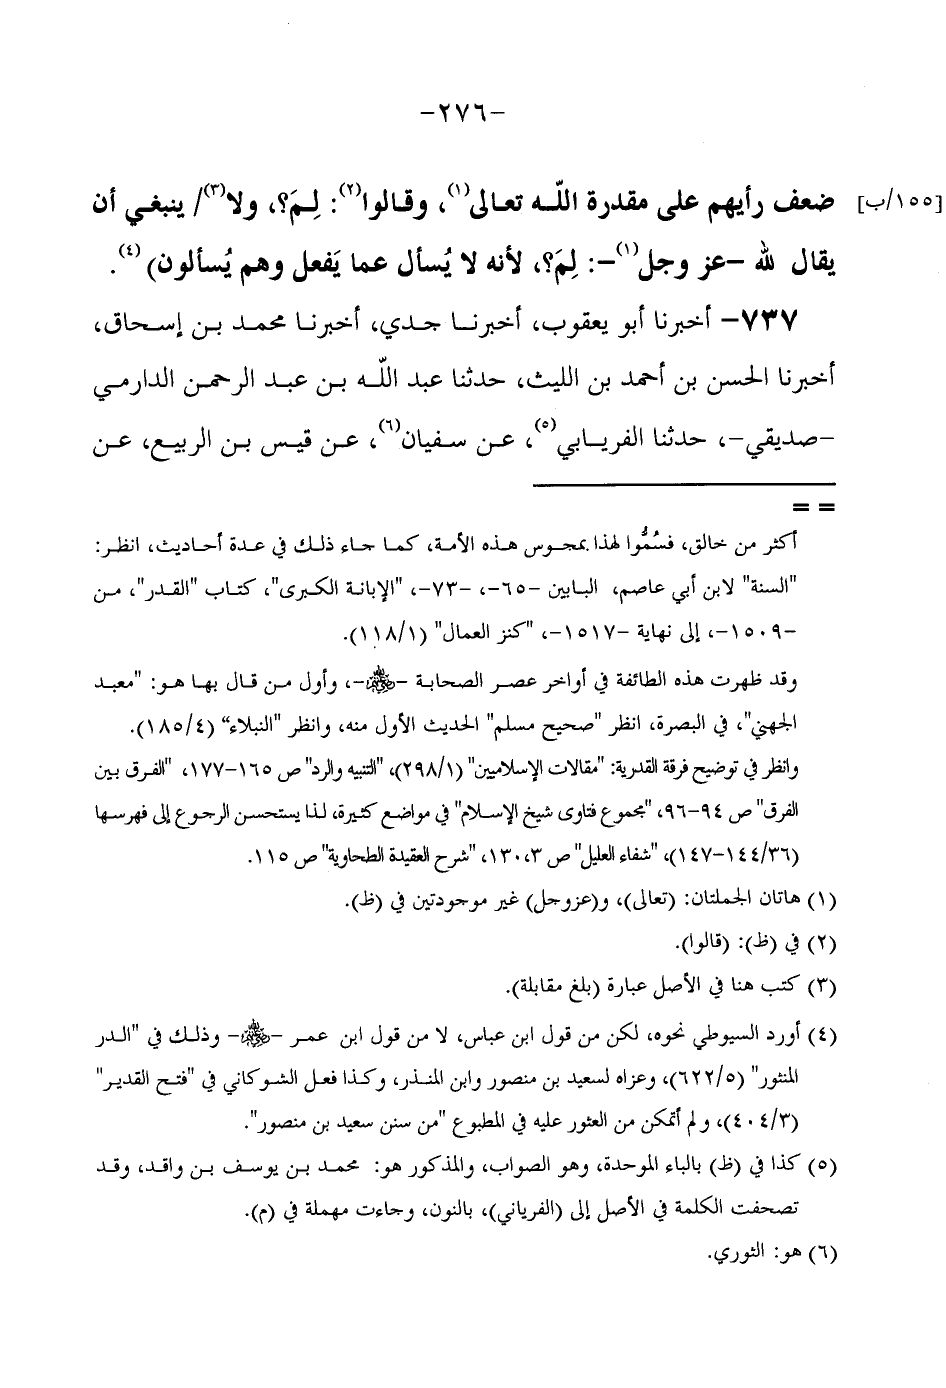 -٢٧٦-
[١٥٥/ب] ضعف رأيهم على مقدرة اللّه تعالى(١)، وقالوا(٢): لِمَ؟، ولا(٣)/ ينبغي أن
يقال لله -عز وجل(١)-: لِمَ؟، لأنه لا يُسأل عما يَفعل وهم يُسألون)(٤).
٧٣٧- أخبرنا أبو يعقوب، أخبرنا جدي، أخبرنا محمد بن إسحاق،
أخبرنا الحسن بن أحمد بن الليث، حدثنا عبد اللّه بن عبد الرحمن الدارمي
-صديقي-، حدثنا الفريابي(٥)، عن سفيان(٦)، عن قيس بن الربيع، عن
= =
أكثر من خالق، فسُمُّوا لهذا بمجوس هذه الأمة، كما جاء ذلك في عدة أحاديث، انظر:
"السنة" لابن أبي عاصم، البابين -٦٥-، -٧٣-، "الإبانة الكبرى"، كتاب "القدر"، من
-١٥٠٩-، إلى نهاية -١٥١٧-، "كنز العمال" (١١٨/١).
وقد ظهرت هذه الطائفة في أواخر عصر الصحابة -﵃-، وأول من قال بها هو: "معبد
الجهني"، في البصرة، انظر "صحيح مسلم" الحديث الأول منه، وانظر "النبلاء" (١٨٥/٤).
وانظر في توضيح فرقة القدرية: "مقالات الإسلاميين" (٢٩٨/١)، "التنبيه والرد" ص ١٦٥-١٧٧، "الفرق بين
الفرق" ص ٩٤-٩٦، "مجموع فتاوى شيخ الإسلام" في مواضع كثيرة، لذا يستحسن الرجوع إلى فهرسها
(١٤٤/٣٦-١٤٧)، "شفاء العليل" ص ٣،١٣٠، "شرح العقيدة الطحاوية" ص ١١٥.
(١) هاتان الجملتان: (تعالى)، و(عزوجل) غير موجودتين في (ظ).
(٢) في (ظ): (قالوا).
(٣) كتب هنا في الأصل عبارة (بلغ مقابلة).
(٤) أورد السيوطي نحوه، لكن من قول ابن عباس، لا من قول ابن عمر -﵃- وذلك في "الدر
المنثور" (٦٢٢/٥)، وعزاه لسعيد بن منصور وابن المنذر، وكذا فعل الشوكاني في "فتح القدير"
(٤٠٤/٣)، ولم أتمكن من العثور عليه في المطبوع "من سنن سعيد بن منصور".
(٥) كذا في (ظ) بالباء الموحدة، وهو الصواب، والمذكور هو: محمد بن يوسف بن واقد، وقد
تصحفت الكلمة في الأصل إلى (الفرياني)، بالنون، وجاءت مهملة في (م).
(٦) هو: الثوري.